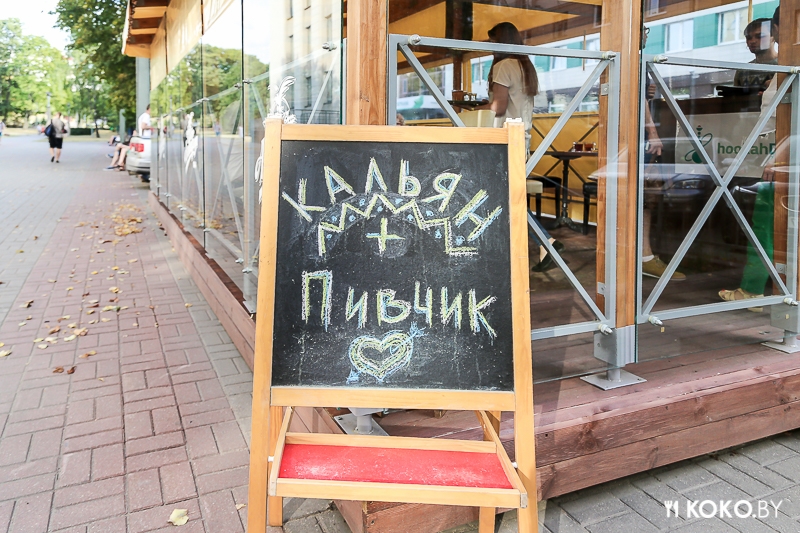 КАЛЬЯН
+
ПИВЧИК
hookahD
KOKO.BY